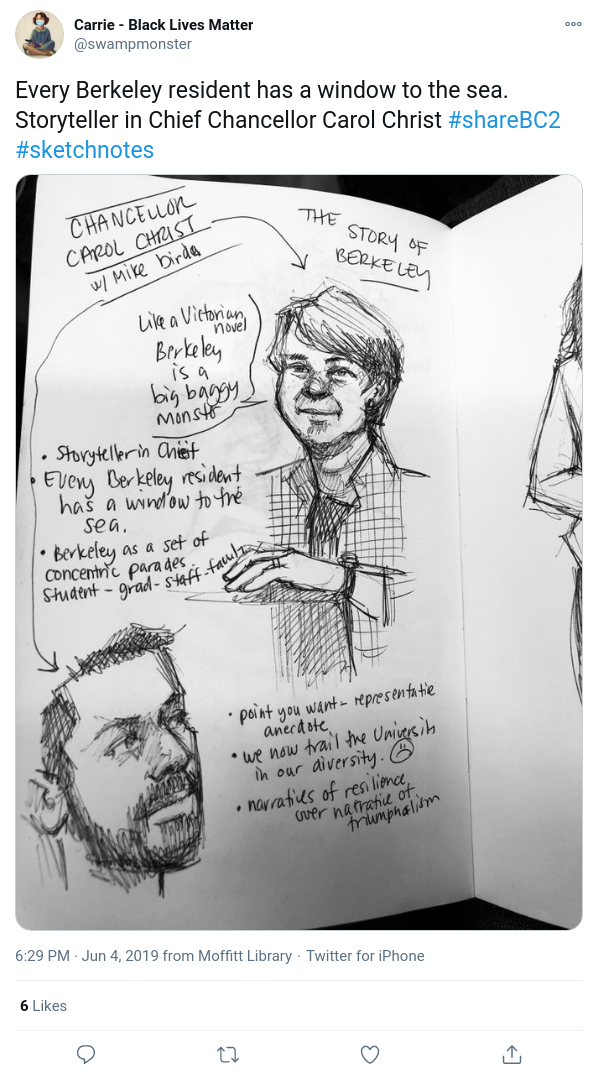 Carrie - Black Lives Matter
@swampmonster
Every Berkeley resident has a window to the sea.
Storyteller in Chief Chancellor Carol Christ #shareBC2
#sketchnotes
CHANCELLOR
CAROL CHRIST
w/ Mike birda
THE STORY OF
BERKELEY
Like a Victorian
novel
Berkeley
is a
big baggy
monstr
• Storyteller in Chief
• Every Berkeley resident
has a window to the
sea.
• Berkeley as a set of
concentric parades
student - grad - staff - faculty
• point you want - representatie
anecdote
• we now trail the Universih
in our diversity.
• narraties of resilience
over narratie of
triumphalism
6:29 PM · Jun 4, 2019 from Moffitt Library · Twitter for iPhone
6 Likes